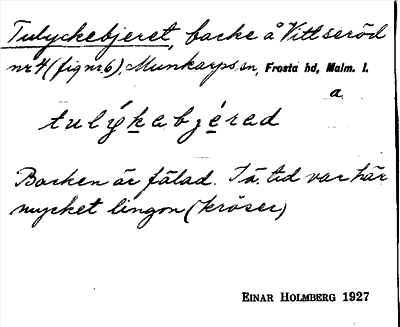 Tulyckebjeret, backe å Vittseröd
nr 4 (fig nr 6), Munkarps sn, Frosta hd, Malm. l.
a.
tulýkabjérad
Backen är fälad. I ä. tid var här
mycket lingon (kröser)
EINAR HOLMBERG 1927